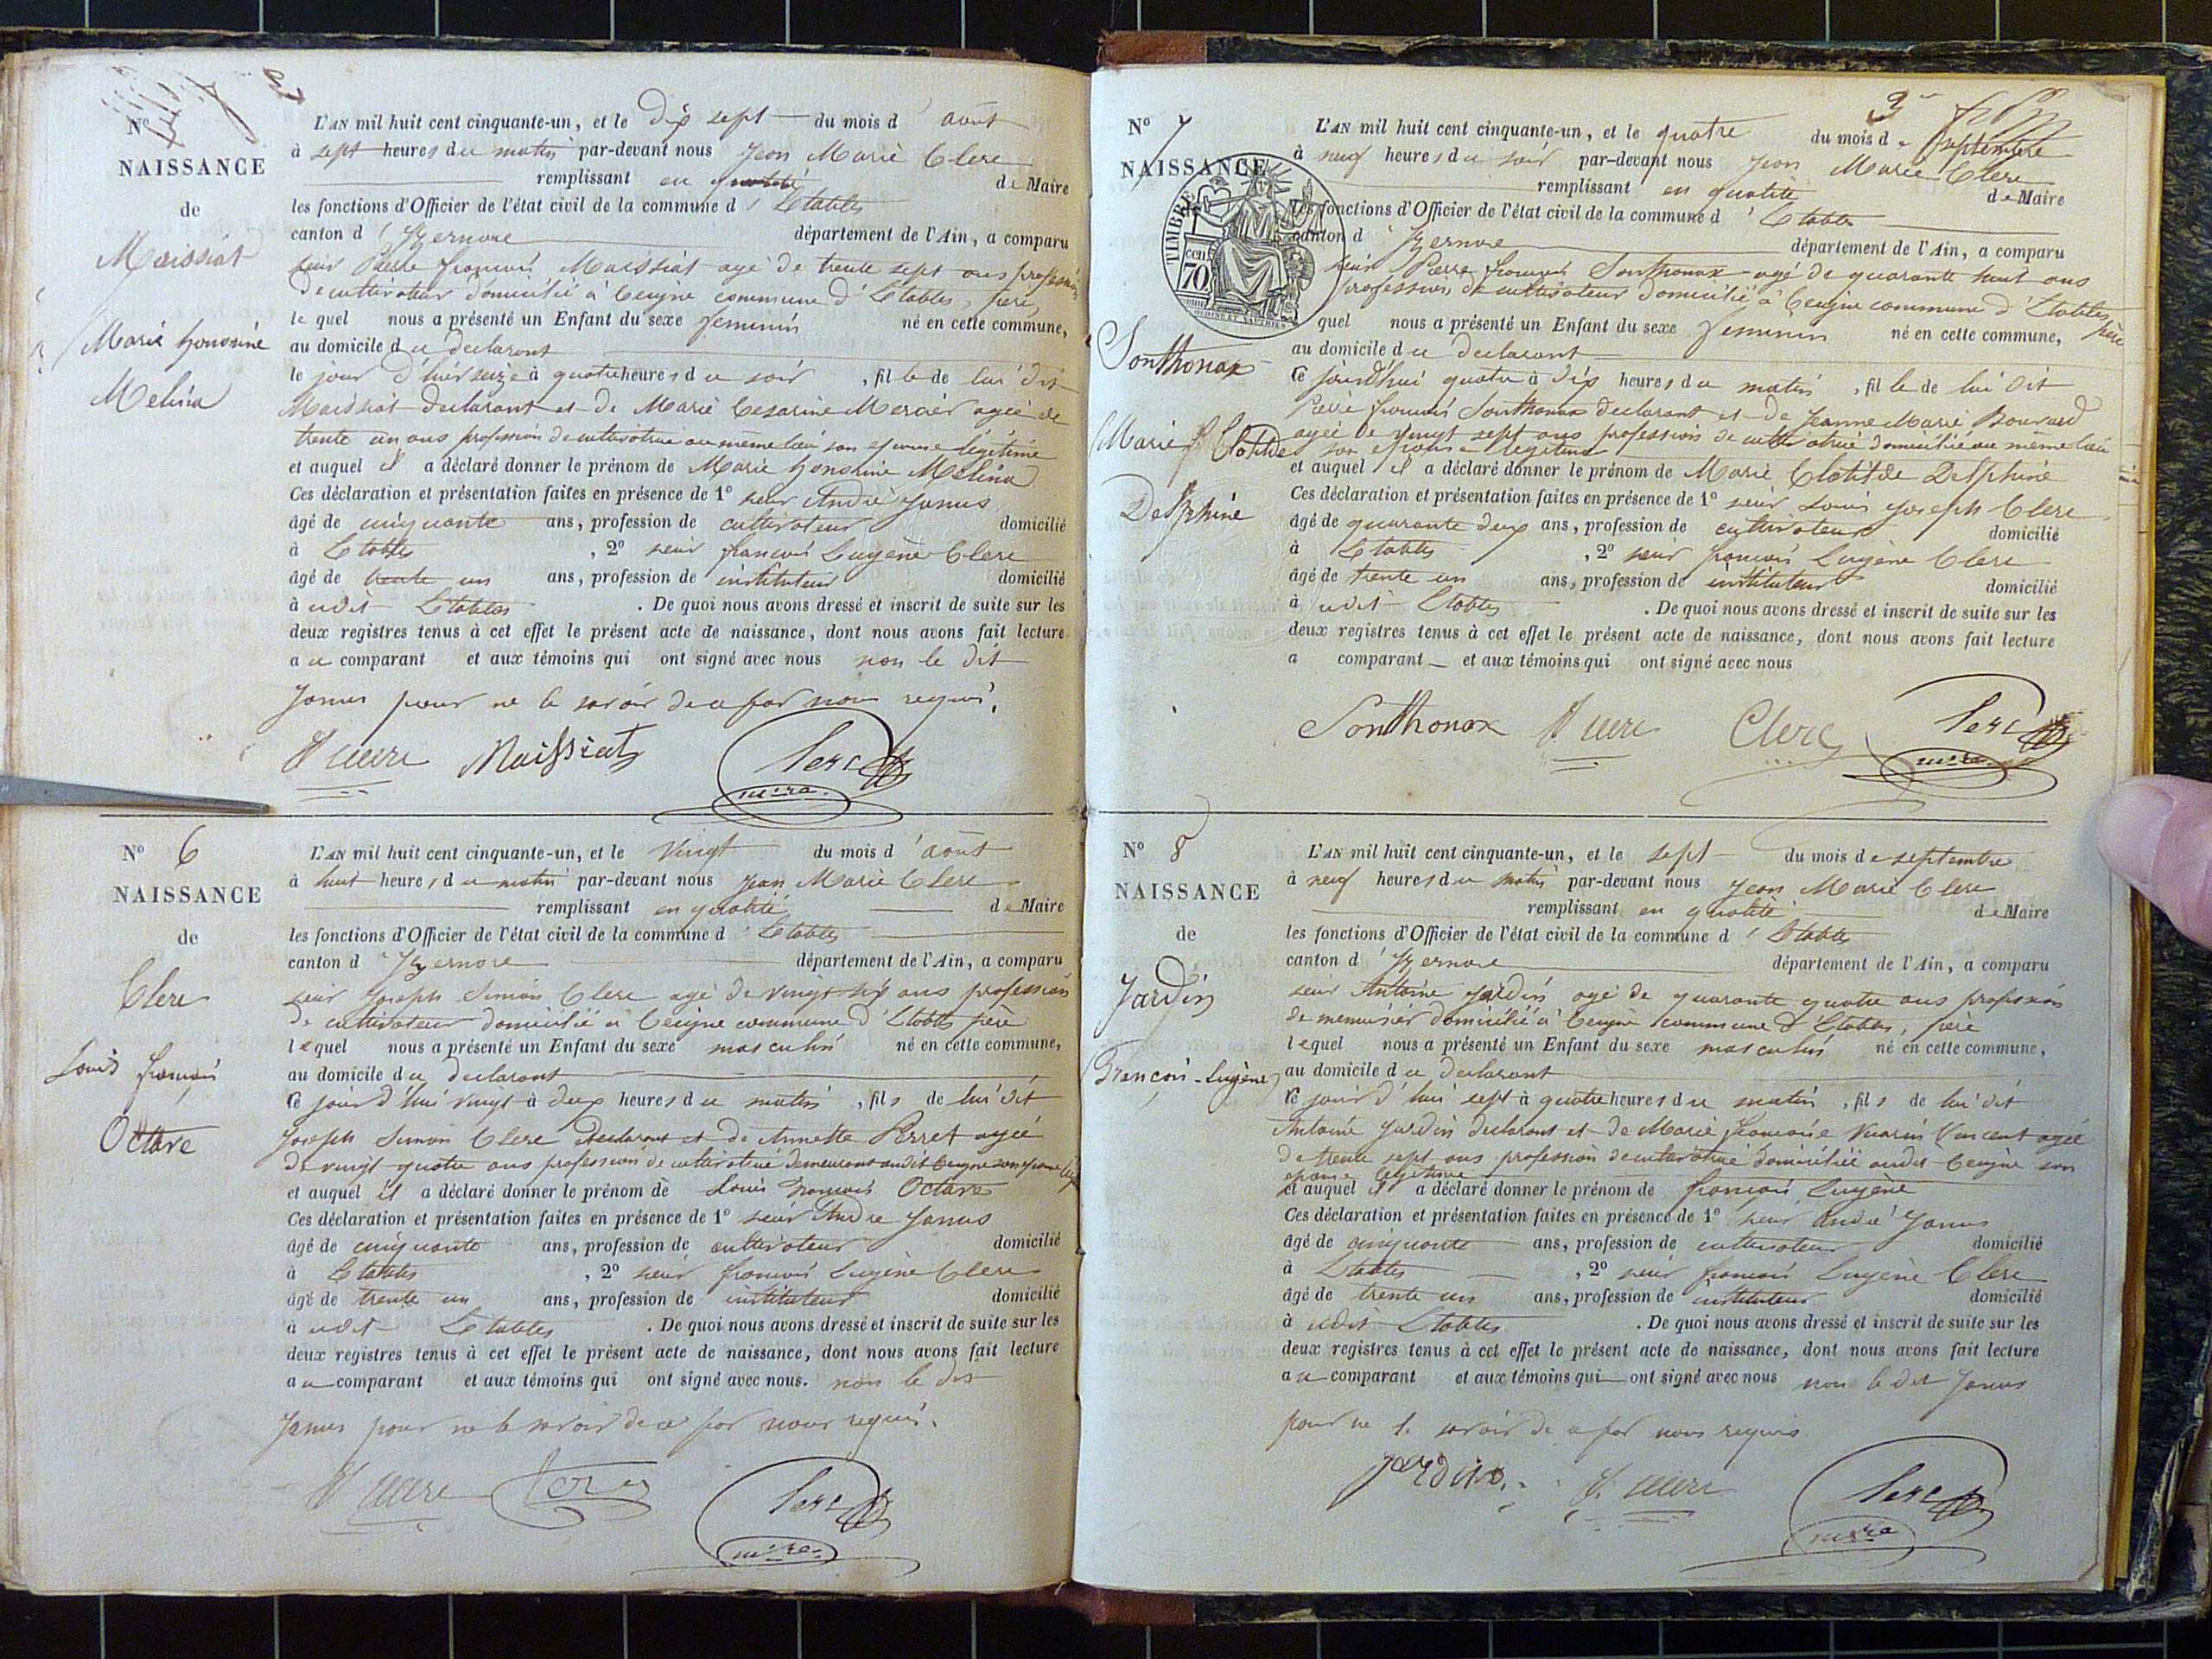 Nº
NAISSANCE
de
Maissiat
Marie honorine
Melina
L'AN mil huit cent cinquante-un, et le Dix sept du mois d'août
à sept heures du matin par-devant nous Jean Marie Clerc
remplissant en qualité de Maire
les fonctions d'Officier de l'état civil de la commune d'Etables
canton d'Izernore département de l'Ain, a comparu
sieur Pierre françois Maissiat agé de trente sept ans profession
de cultivateur domicilié à Ceigne commune d'Etables, père,
lequel nous a présenté un Enfant du sexe feminin né en cette commune,
au domicile du declarant
le jour d'hier seize à quatre heures du soir, fille de lui dit
Maissiat declarant et de Marie Cesarine Mercier agée de
trente un ans profession de cultivatrice au même lieu son epouse légitime
et auquel il a déclaré donner le prénom de Marie honorine Melina
Ces déclaration et présentation faites en présence de 1º sieur André Janus
âgé de cinquante ans, profession de cultivateur domicilié
à Etables, 2º sieur françois Eugène Clerc
âgé de trente un ans, profession de instituteur domicilié
à udit Etables. De quoi nous avons dressé et inscrit de suite sur les
deux registres tenus à cet effet le présent acte de naissance, dont nous avons fait lecture
au comparant et aux témoins qui ont signé avec nous non le dit
Janus pour ne le savoir de ce par nous requis.
Maissiat Clerc
mre
Nº 6
NAISSANCE
de
Clerc
Louis françois
Octave
L'AN mil huit cent cinquante-un, et le vingt du mois d'août
à huit heures du matin par-devant nous Jean Marie Clerc
remplissant en qualité de Maire
les fonctions d'Officier de l'état civil de la commune d'Etables
canton d'Izernore département de l'Ain, a comparu
sieur Joseph Simon Clerc agé de vingt six ans profession
de cultivateur domicilié à Ceigne commune d'Etables père
lequel nous a présenté un Enfant du sexe masculin né en cette commune,
au domicile du declarant
ce jourd'hui vingt à deux heures du matin, fils de lui dit
Joseph Simon Clerc declarant et de Annette Perret agée
de vingt quatre ans profession de cultivatrice demeurant audit Ceigne son epouse
et auquel il a déclaré donner le prénom de Louis françois Octave
Ces déclaration et présentation faites en présence de 1º sieur André Janus
âgé de cinquante ans, profession de cultivateur domicilié
à Etables, 2º sieur françois Eugène Clerc
âgé de trente un ans, profession de instituteur domicilié
à udit Etables. De quoi nous avons dressé et inscrit de suite sur les
deux registres tenus à cet effet le présent acte de naissance, dont nous avons fait lecture
au comparant et aux témoins qui ont signé avec nous. non le dit
Janus pour ne le savoir de ce par nous requis.
Clerc
mre
3
Nº 7
NAISSANCE
TIMBRE
70 cen
Sonthonax
Marie Clotilde
Delphine
L'AN mil huit cent cinquante-un, et le quatre du mois de septembre
à neuf heures du soir par-devant nous Jean Marie Clerc
remplissant en qualité de Maire
les fonctions d'Officier de l'état civil de la commune d'Etables
canton d'Izernore département de l'Ain, a comparu
sieur Pierre françois Sonthonax agé de quarante huit ans
profession de cultivateur domicilié à Ceigne commune d'Etables, père
quel nous a présenté un Enfant du sexe feminin né en cette commune,
au domicile du declarant
ce jourd'hui quatre à dix heures du matin, fille de lui dit
Pierre françois Sonthonax declarant et de Jeanne Marie Bouvard
agée de vingt sept ans profession de cultivatrice domiciliée au même lieu
son epouse legitime
et auquel il a déclaré donner le prénom de Marie Clotilde Delphine
Ces déclaration et présentation faites en présence de 1º sieur Louis Joseph Clerc
âgé de quarante deux ans, profession de cultivateur domicilié
à Etables, 2º sieur françois Eugène Clerc
âgé de trente un ans, profession de instituteur domicilié
à udit Etables. De quoi nous avons dressé et inscrit de suite sur les
deux registres tenus à cet effet le présent acte de naissance, dont nous avons fait lecture
a comparant et aux témoins qui ont signé avec nous
Sonthonax Clerc Clerc
mre
Nº 8
NAISSANCE
de
Jardin
François-Eugène
L'AN mil huit cent cinquante-un, et le sept du mois de septembre
à neuf heures du matin par-devant nous Jean Marie Clerc
remplissant en qualité de Maire
les fonctions d'Officier de l'état civil de la commune d'Etables
canton d'Izernore département de l'Ain, a comparu
sieur Antoine Jardin agé de quarante quatre ans profession
de menuisier domicilié à Ceigne commune d'Etables, père
lequel nous a présenté un Enfant du sexe masculin né en cette commune,
au domicile du declarant
ce jourd'hui sept à quatre heures du matin, fils de lui dit
Antoine Jardin declarant et de Marie françoise Vuarin Vincent agée
de trente sept ans profession de cultivatrice domiciliée audit Ceigne son
epouse legitime
et auquel il a déclaré donner le prénom de françois Eugène
Ces déclaration et présentation faites en présence de 1º sieur André Janus
âgé de cinquante ans, profession de cultivateur domicilié
à Etables, 2º sieur françois Eugène Clerc
âgé de trente un ans, profession de instituteur domicilié
à udit Etables. De quoi nous avons dressé et inscrit de suite sur les
deux registres tenus à cet effet le présent acte de naissance, dont nous avons fait lecture
au comparant et aux témoins qui ont signé avec nous non le dit Janus
pour ne le savoir de ce par nous requis
Jardin. Clerc
mre